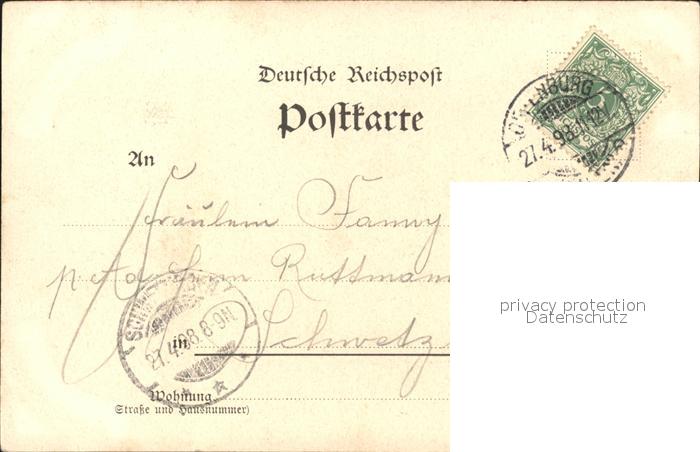 Deutsche Reichspost
Postkarte
An
Fräulein Fanny
p Ad Herrn Ruttmann
in Schwetz
27.4.98
27.4.98 8-9N
privacy protection
Datenschutz
Wohnung
(Straße und Hausnummer)